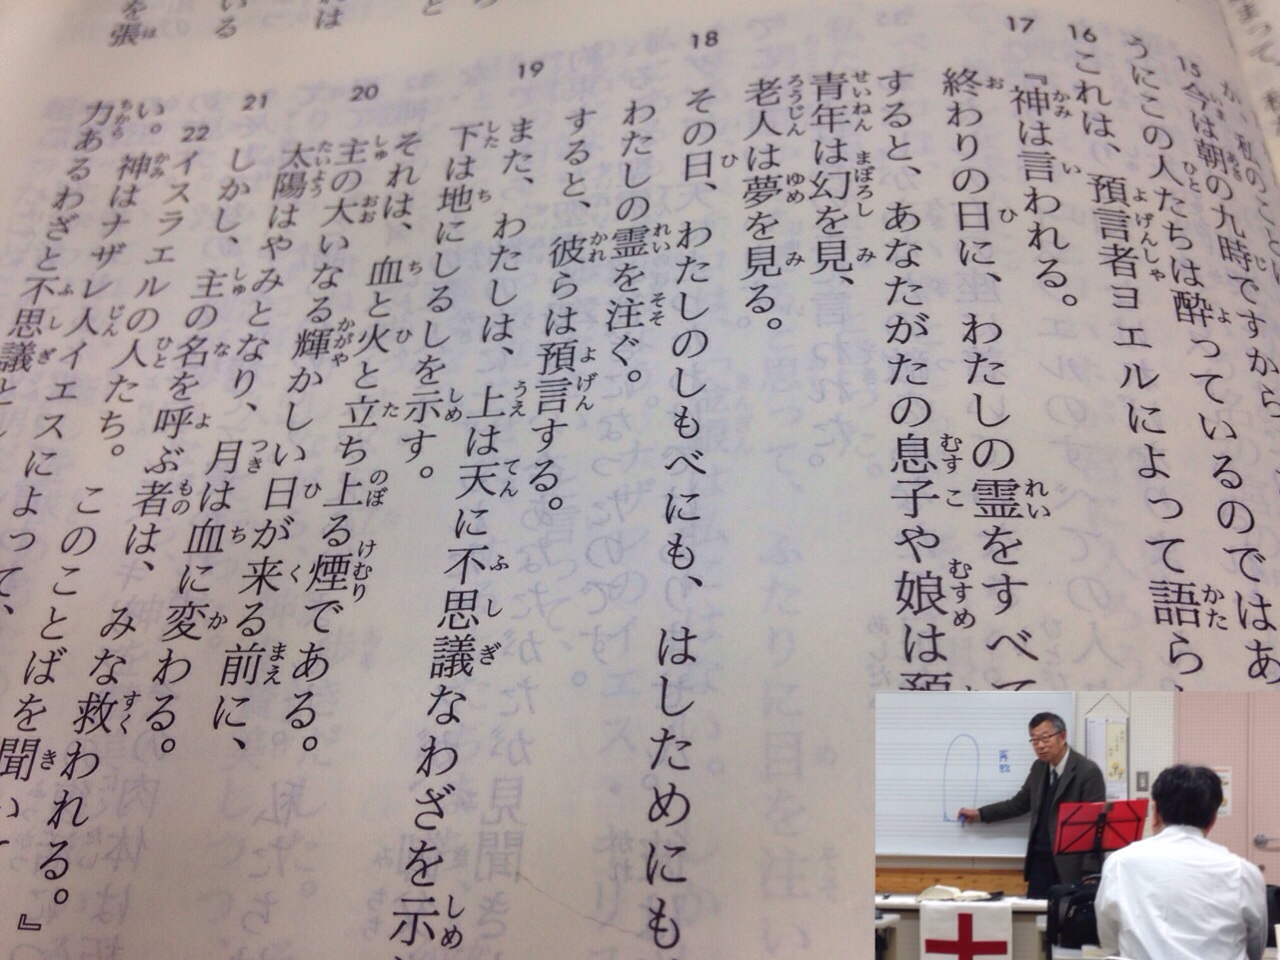 か、私のことに
15 今は朝の九時ですから
うにこの人たちは酔っているのではあ
16 これは、預言者ヨエルによって語ら
17 『神は言われる。
終わりの日に、わたしの霊をすべて
すると、あなたがたの息子や娘は預
青年は幻を見、
老人は夢を見る。
18 その日、わたしのしもべにも、はしためにも
わたしの霊を注ぐ。
すると、彼らは預言する。
19 また、わたしは、上は天に不思議なわざを示
下は地にしるしを示す。
それは、血と火と立ち上る煙である。
20 主の大いなる輝かしい日が来る前に、
太陽はやみとなり、月は血に変わる。
21 しかし、主の名を呼ぶ者は、みな救われる。』
22 イスラエルの人たち。このことばを聞いて
い。神はナザレ人イエスによって、
力あるわざと不思議と
を張
いる